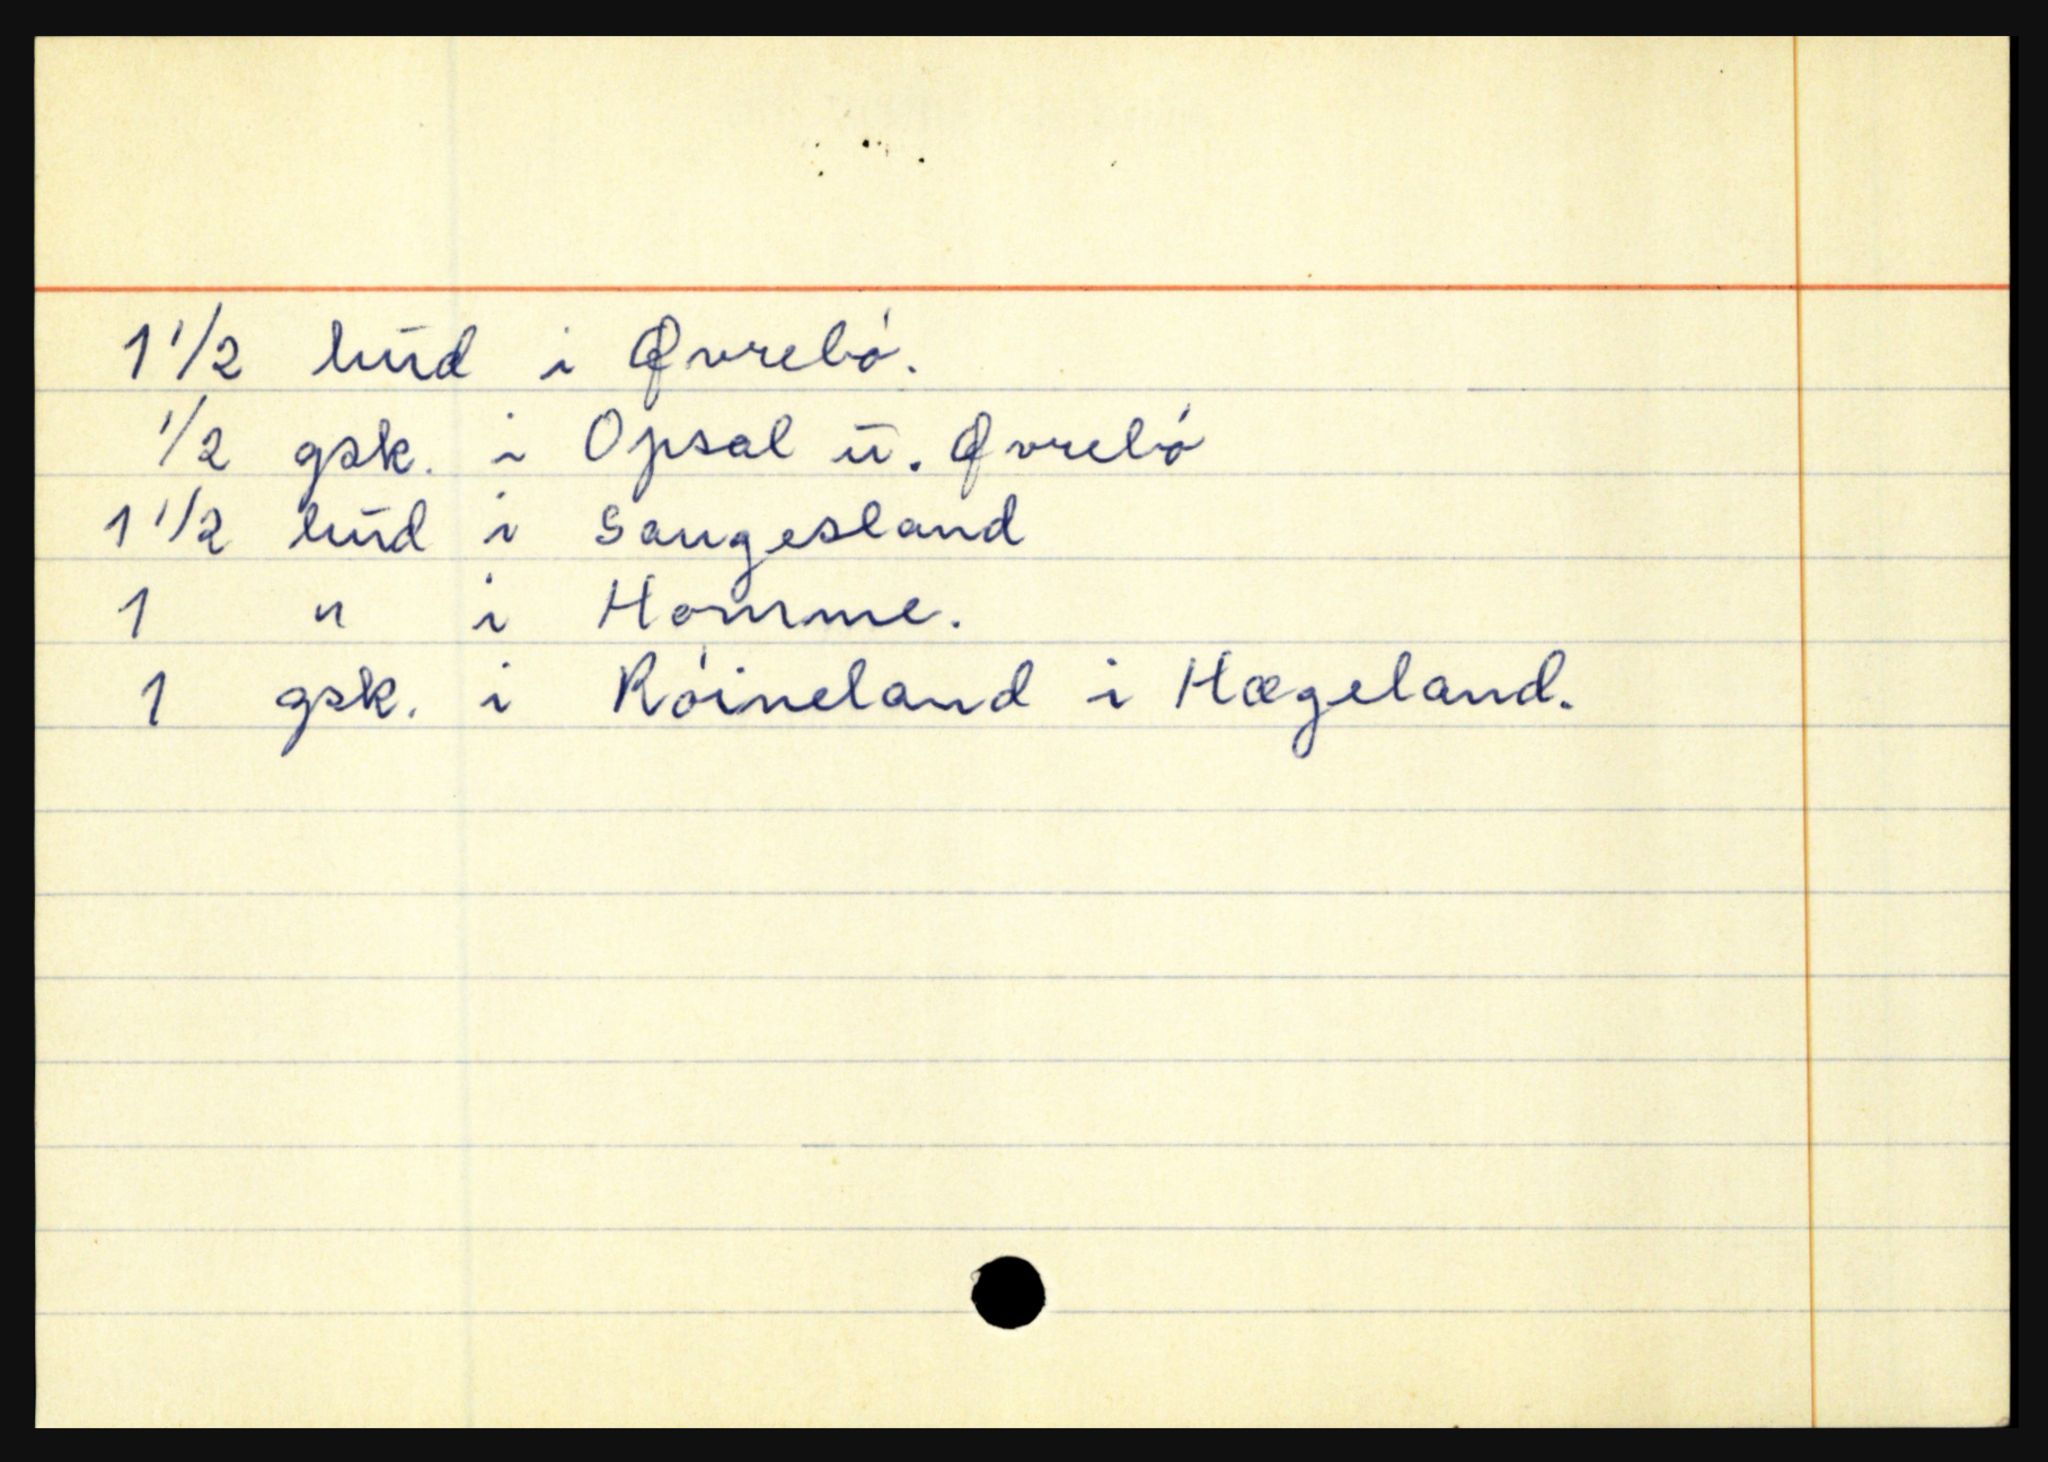 1 1/2 hud i Øvrebø.
1/2 gsk. i Opsal u. Øvrebø
1 1/2 hud i Saugesland
1 " i Homme.
1 gsk. i Røineland i Hægeland.